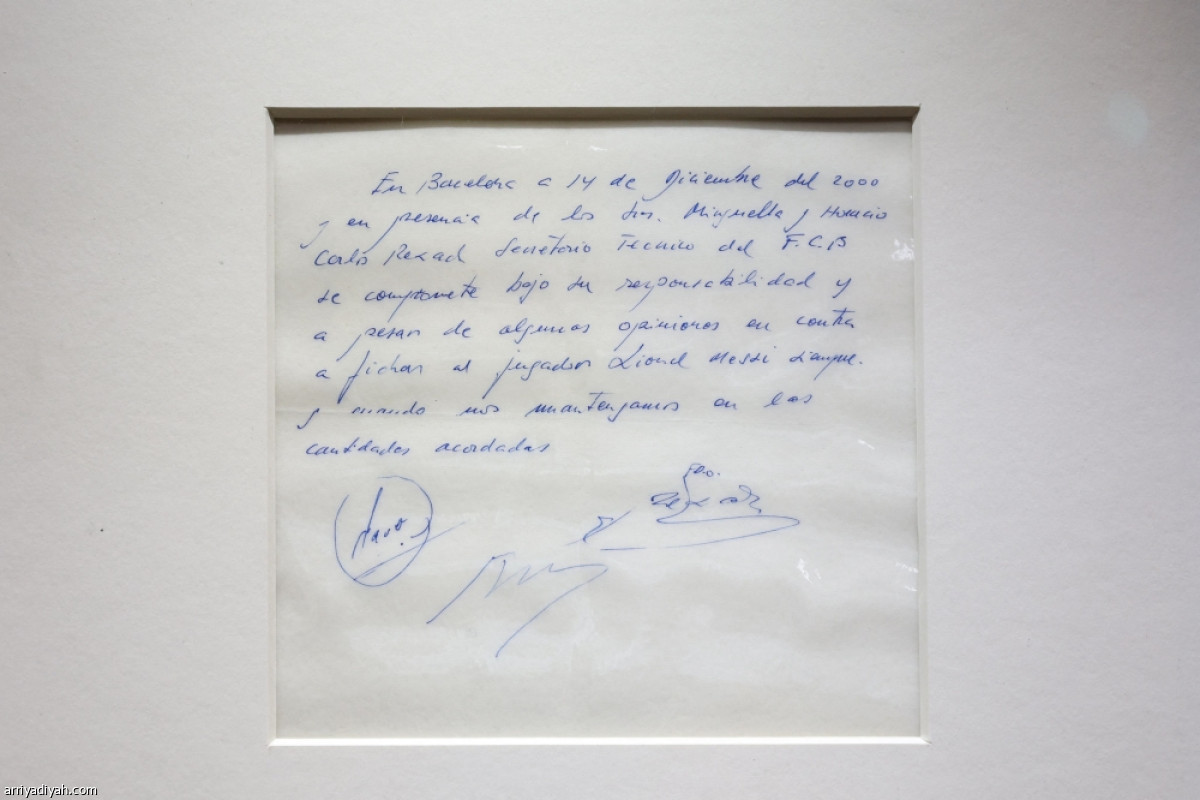 En Barcelona a 14 de Diciembre del 2000
y en presencia de los Srs. Minguella y Horacio
Carlos Rexach Secretario Tecnico del F.C.B
se compromete bajo su responsabilidad y
a pesar de algunas opiniones en contra
a fichar al jugador Lionel Messi siempre.
y cuando nos mantengamos en las
cantidades acordadas
Fdo.
arriyadiyah.com